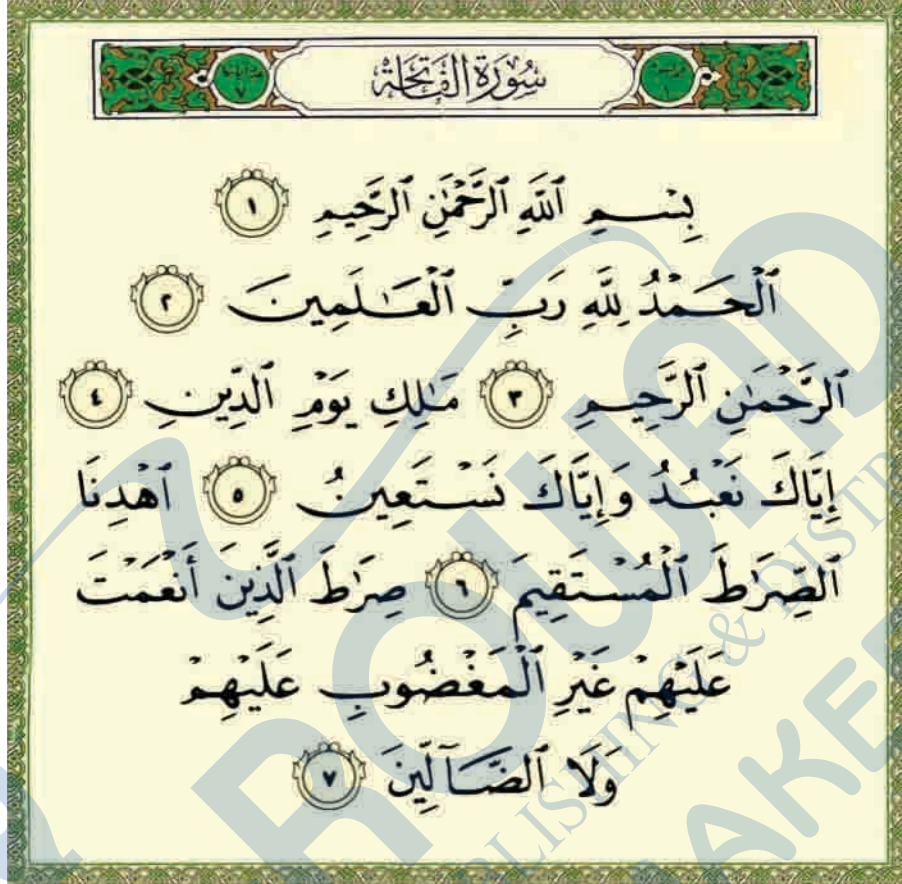 سُورَةُ الْفَاتِحَةِ
بِسْمِ ٱللَّهِ ٱلرَّحْمَٰنِ ٱلرَّحِيمِ ١
ٱلْحَمْدُ لِلَّهِ رَبِّ ٱلْعَٰلَمِينَ ٢
ٱلرَّحْمَٰنِ ٱلرَّحِيمِ ٣ مَٰلِكِ يَوْمِ ٱلدِّينِ ٤
إِيَّاكَ نَعْبُدُ وَإِيَّاكَ نَسْتَعِينُ ٥ ٱهْدِنَا
ٱلصِّرَٰطَ ٱلْمُسْتَقِيمَ ٦ صِرَٰطَ ٱلَّذِينَ أَنْعَمْتَ
عَلَيْهِمْ غَيْرِ ٱلْمَغْضُوبِ عَلَيْهِمْ
وَلَا ٱلضَّآلِّينَ ٧
ROWAD